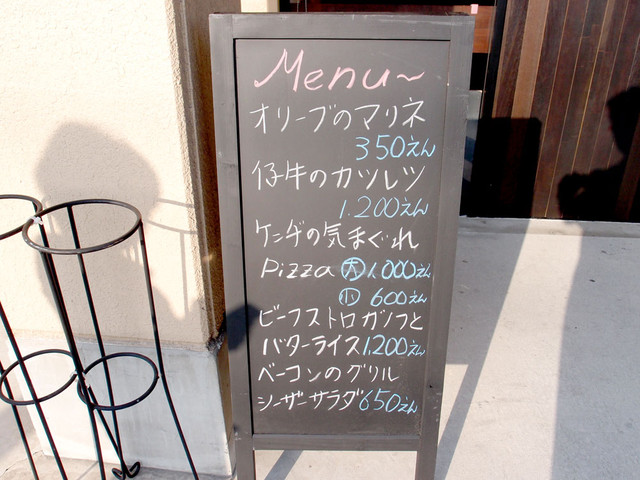 Menu~
オリーブのマリネ
350えん
仔牛のカツレツ
1.200えん
ケンヂの気まぐれ
Pizza 大 1.000えん
小 600えん
ビーフストロガノフと
バターライス 1200えん
ベーコンのグリル
シーザーサラダ 650えん